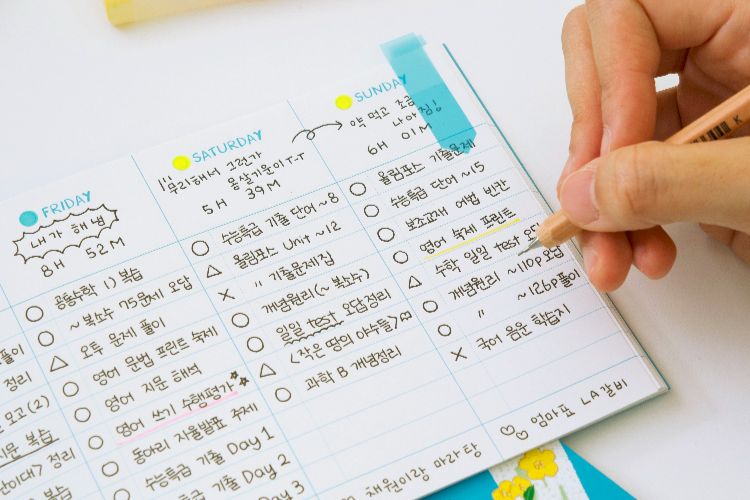 풀이
정리
모고(2)
지문 복습
난이대> 정리
복습
FRIDAY
내가 해냄
8H 52M
공통수학 1) 복습
~복소수 75문제 오답
오투 문제 풀이
영어 문법 프린트 숙제
영어 지문 해석
영어 쓰기 수행평가
동아리 자율발표 주제
수능특급 기출 Day 1
수능특급 기출 Day 2
Day 3
SATURDAY
무리해서 그런가
몸살기운이 T-T
5H 39M
수능특급 기출 단어 ~8
올림포스 Unit ~12
" 기출문제집
개념원리(~복소수)
일일 test 오답정리
<작은 땅의 야수들>
과학 B 개념정리
채원이랑 마라탕
SUNDAY
약 먹고 조금
나아짐!
6H 01M
올림포스 기출문제
수능특급 단어 ~15
보조교재 어법 빈칸
영어 숙제 프린트
수학 일일 test 오답
개념원리 ~110p 오답
" ~126p 풀이
국어 음운 학습지
엄마표 LA갈비
K